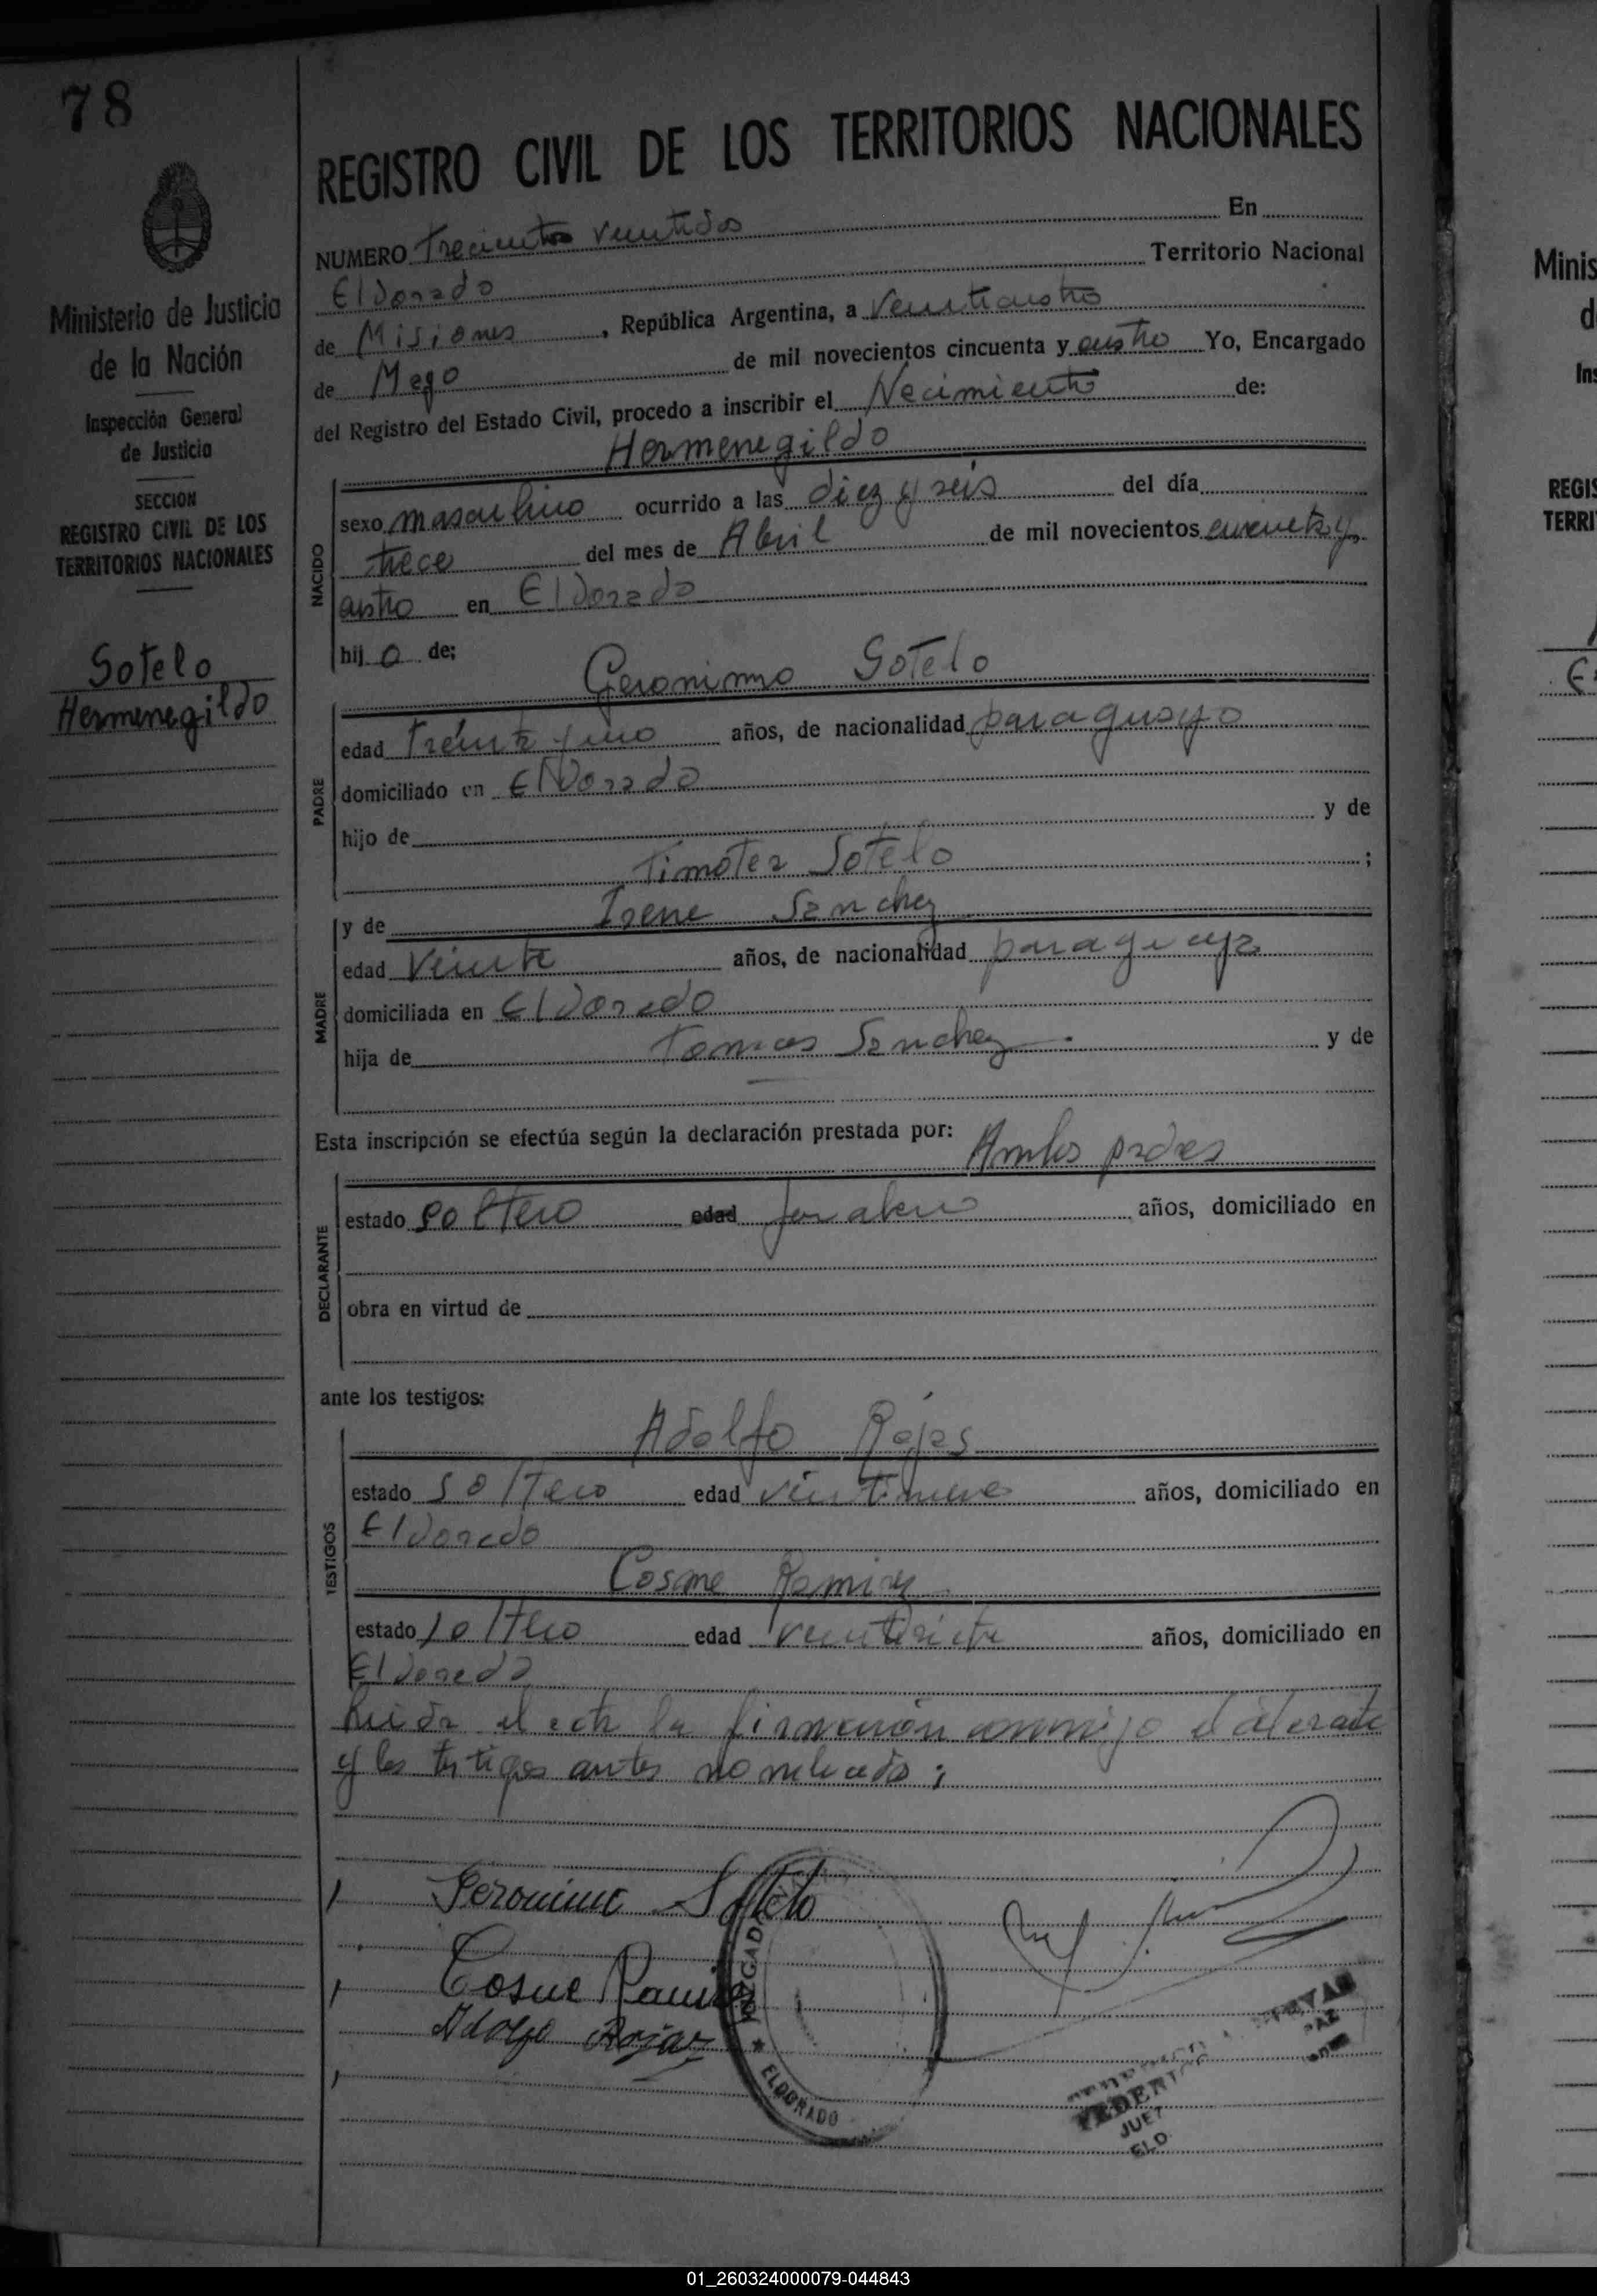 78
Ministerio de Justicia
de la Nación
Inspección General
de Justicia
SECCION
REGISTRO CIVIL DE LOS
TERRITORIOS NACIONALES
Sotelo
Hermenegildo
REGISTRO CIVIL DE LOS TERRITORIOS NACIONALES
NUMERO Trecientos veintidos En
Eldorado Territorio Nacional
de Misiones, República Argentina, a Veinticuatro
de Mayo de mil novecientos cincuenta y cuatro Yo, Encargado
del Registro del Estado Civil, procedo a inscribir el Nacimiento de:
Hermenegildo
NACIDO
sexo masculino ocurrido a las diez y seis del día
trece del mes de Abril de mil novecientos cincuenta y
cuatro en Eldorado
hijo de;
Geronimo Sotelo
PADRE
edad Treinta y uno años, de nacionalidad paraguayo
domiciliado en Eldorado
hijo de y de
Timotea Sotelo ;
MADRE
y de Irene Sanchez
edad Veinte años, de nacionalidad paraguaya
domiciliada en Eldorado
hija de Tomas Sanchez y de
Esta inscripción se efectúa según la declaración prestada por: Ambos padres
DECLARANTE
estado soltero edad años, domiciliado en
obra en virtud de
ante los testigos:
TESTIGOS
Adolfo Rojas
estado soltero edad veintinueve años, domiciliado en
Eldorado
Cosme Ramirez
estado soltero edad veintisiete años, domiciliado en
Eldorado
Leida el acta la firmaron conmigo el
y los testigos antes nombrados;
Geronimo Sotelo
Cosme Ramirez
Adolfo Rojas
JUZGADO
★ ELDORADO
FEDERICO
JUEZ PAZ
ELD
Minis
d
Ins
REGIS
TERRI
01_260324000079-044843